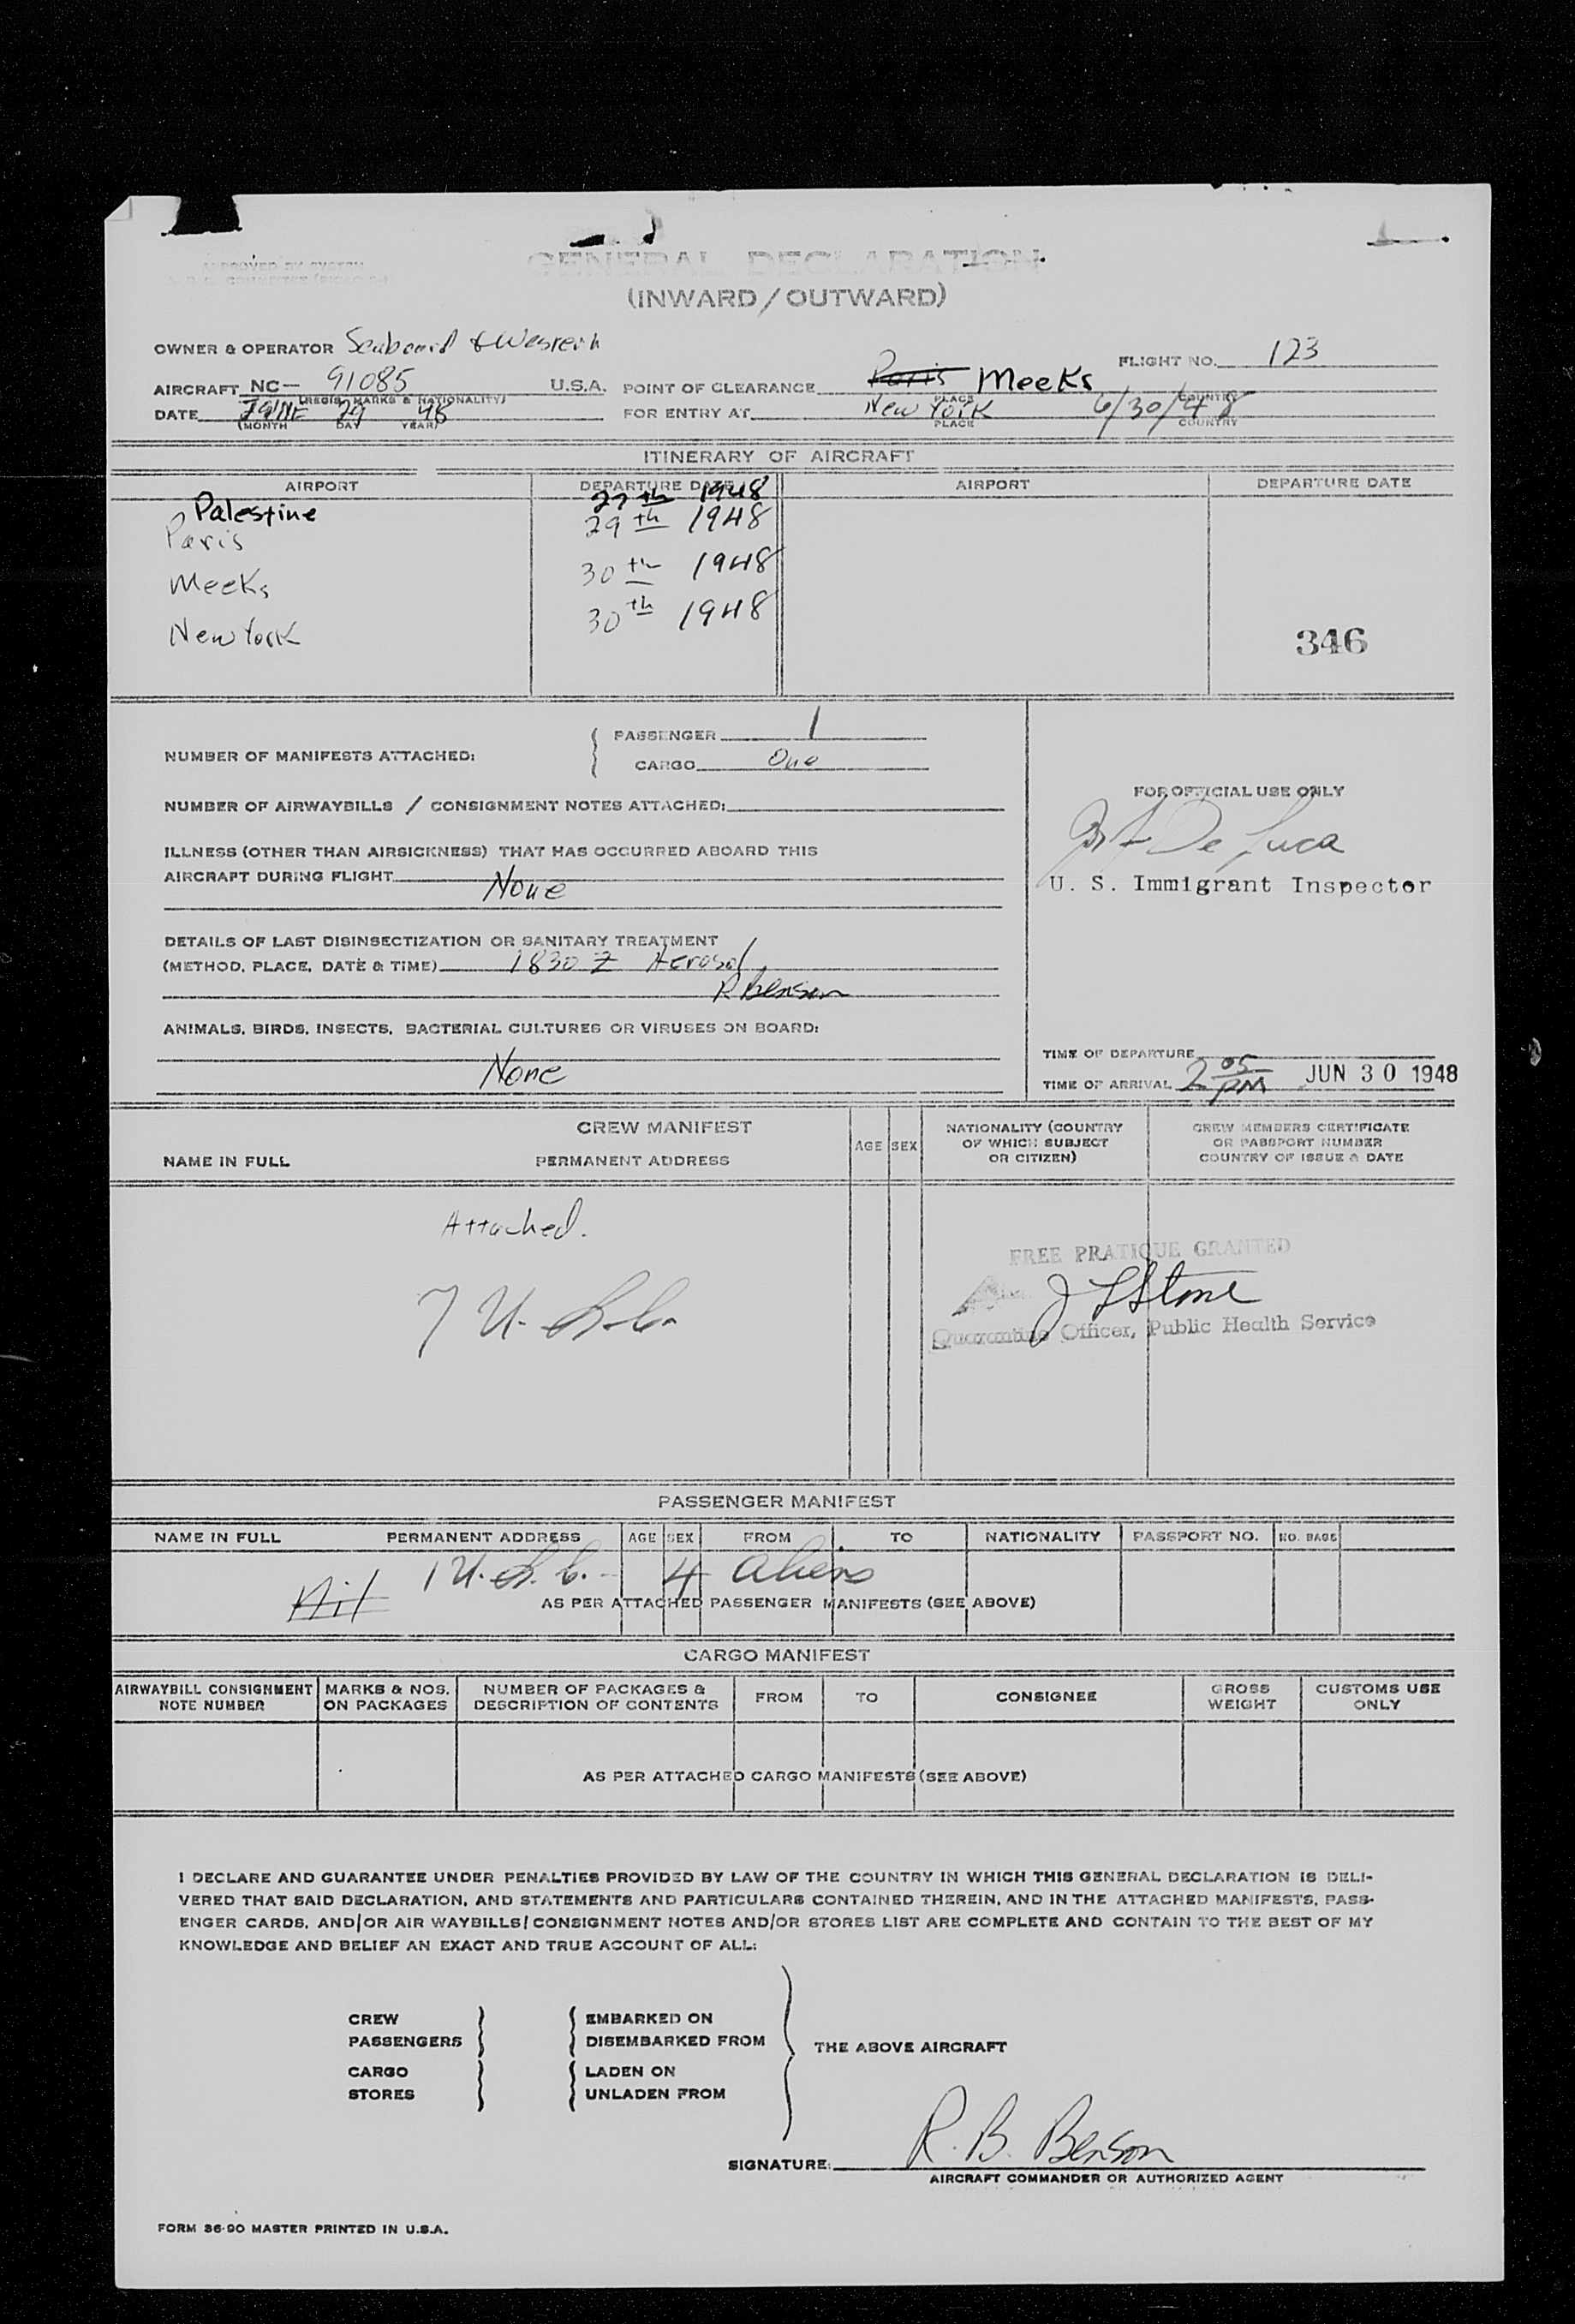 GENERAL DECLARATION
(INWARD/OUTWARD)
OWNER & OPERATOR Seaboard & Western
FLIGHT NO. 123
AIRCRAFT NC- 91085 U.S.A. POINT OF CLEARANCE Paris Meeks
(REGIS. MARKS & NATIONALITY) PLACE COUNTRY
DATE JUNE 29 48 FOR ENTRY AT New York 6/30/48
(MONTH DAY YEAR) PLACE COUNTRY
ITINERARY OF AIRCRAFT
AIRPORT DEPARTURE DATE AIRPORT DEPARTURE DATE
Palestine 27th 1948
Paris 29th 1948
Meeks 30th 1948
New York 30th 1948
346
NUMBER OF MANIFESTS ATTACHED:
PASSENGER 1
CARGO One
NUMBER OF AIRWAYBILLS / CONSIGNMENT NOTES ATTACHED:
ILLNESS (OTHER THAN AIRSICKNESS) THAT HAS OCCURRED ABOARD THIS
AIRCRAFT DURING FLIGHT
None
DETAILS OF LAST DISINSECTIZATION OR SANITARY TREATMENT
(METHOD, PLACE, DATE & TIME) 1830 Z Aerosol
R Benson
ANIMALS, BIRDS, INSECTS, BACTERIAL CULTURES OR VIRUSES ON BOARD:
None
FOR OFFICIAL USE ONLY
De Luca
U. S. Immigrant Inspector
TIME OF DEPARTURE
TIME OF ARRIVAL 2 05 PM JUN 30 1948
CREW MANIFEST
NAME IN FULL PERMANENT ADDRESS AGE SEX
NATIONALITY (COUNTRY
OF WHICH SUBJECT
OR CITIZEN)
CREW MEMBERS CERTIFICATE
OR PASSPORT NUMBER
COUNTRY OF ISSUE & DATE
Attached.
7 U.S.C.
FREE PRATIQUE GRANTED
J L Stone
Quarantine Officer, Public Health Service
PASSENGER MANIFEST
NAME IN FULL PERMANENT ADDRESS AGE SEX FROM TO NATIONALITY PASSPORT NO. NO. BAGS
Nil 1 U.S.C. - 4 aliens
AS PER ATTACHED PASSENGER MANIFESTS (SEE ABOVE)
CARGO MANIFEST
AIRWAYBILL CONSIGNMENT
NOTE NUMBER
MARKS & NOS.
ON PACKAGES
NUMBER OF PACKAGES &
DESCRIPTION OF CONTENTS
FROM
TO
CONSIGNEE
GROSS
WEIGHT
CUSTOMS USE
ONLY
AS PER ATTACHED CARGO MANIFESTS (SEE ABOVE)
I DECLARE AND GUARANTEE UNDER PENALTIES PROVIDED BY LAW OF THE COUNTRY IN WHICH THIS GENERAL DECLARATION IS DELI-
VERED THAT SAID DECLARATION, AND STATEMENTS AND PARTICULARS CONTAINED THEREIN, AND IN THE ATTACHED MANIFESTS, PASS-
ENGER CARDS, AND/OR AIR WAYBILLS/CONSIGNMENT NOTES AND/OR STORES LIST ARE COMPLETE AND CONTAIN TO THE BEST OF MY
KNOWLEDGE AND BELIEF AN EXACT AND TRUE ACCOUNT OF ALL:
CREW EMBARKED ON
PASSENGERS DISEMBARKED FROM
THE ABOVE AIRCRAFT
CARGO LADEN ON
STORES UNLADEN FROM
SIGNATURE: R. B. Benson
AIRCRAFT COMMANDER OR AUTHORIZED AGENT
FORM 36-90 MASTER PRINTED IN U.S.A.